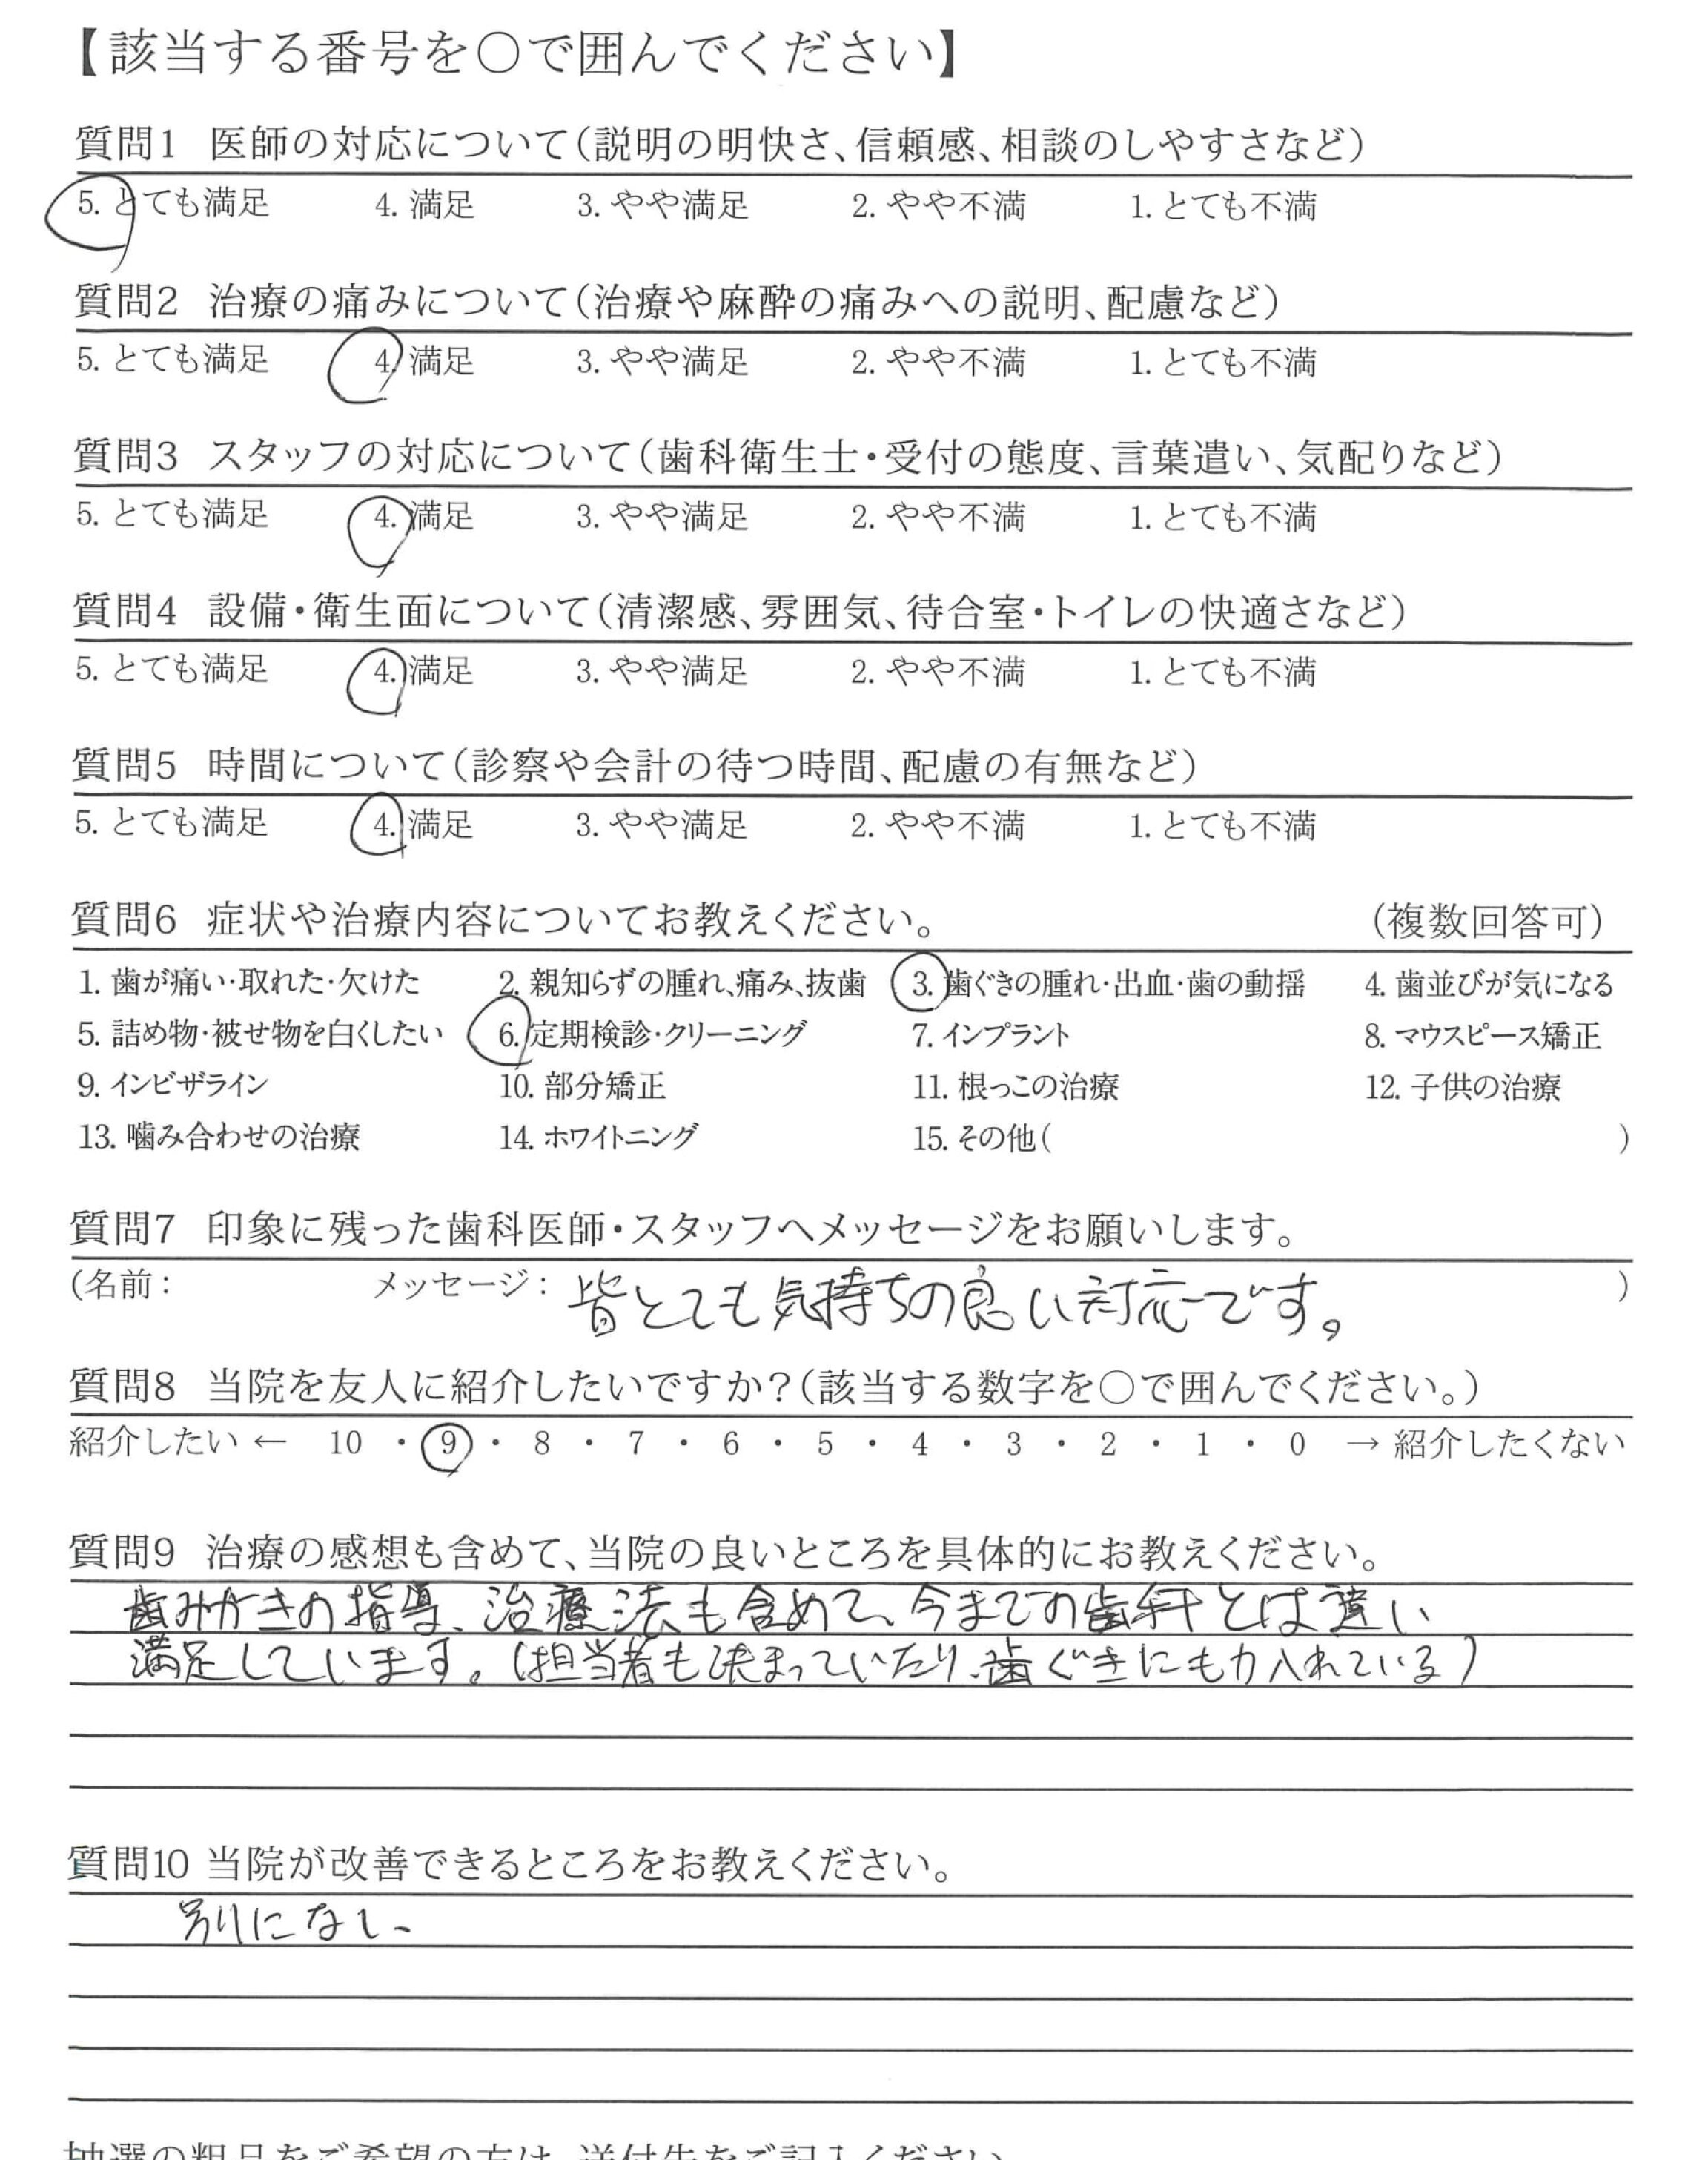 【該当する番号を○で囲んでください】
質問1 医師の対応について(説明の明快さ、信頼感、相談のしやすさなど)
5. とても満足 4. 満足 3. やや満足 2. やや不満 1. とても不満
質問2 治療の痛みについて(治療や麻酔の痛みへの説明、配慮など)
5. とても満足 4. 満足 3. やや満足 2. やや不満 1. とても不満
質問3 スタッフの対応について(歯科衛生士・受付の態度、言葉遣い、気配りなど)
5. とても満足 4. 満足 3. やや満足 2. やや不満 1. とても不満
質問4 設備・衛生面について(清潔感、雰囲気、待合室・トイレの快適さなど)
5. とても満足 4. 満足 3. やや満足 2. やや不満 1. とても不満
質問5 時間について(診察や会計の待つ時間、配慮の有無など)
5. とても満足 4. 満足 3. やや満足 2. やや不満 1. とても不満
質問6 症状や治療内容についてお教えください。 (複数回答可)
1. 歯が痛い・取れた・欠けた 2. 親知らずの腫れ、痛み、抜歯 3. 歯ぐきの腫れ・出血・歯の動揺 4. 歯並びが気になる
5. 詰め物・被せ物を白くしたい 6. 定期検診・クリーニング 7. インプラント 8. マウスピース矯正
9. インビザライン 10. 部分矯正 11. 根っこの治療 12. 子供の治療
13. 噛み合わせの治療 14. ホワイトニング 15. その他( )
質問7 印象に残った歯科医師・スタッフへメッセージをお願いします。
(名前: メッセージ: 皆とても気持ちの良い対応です。 )
質問8 当院を友人に紹介したいですか?(該当する数字を○で囲んでください。)
紹介したい ← 10 ・ 9 ・ 8 ・ 7 ・ 6 ・ 5 ・ 4 ・ 3 ・ 2 ・ 1 ・ 0 → 紹介したくない
質問9 治療の感想も含めて、当院の良いところを具体的にお教えください。
歯みがきの指導、治療法も含めて、今までの歯科とは違い
満足しています。(担当者も決まっていたり、歯ぐきにも力入れている)
質問10 当院が改善できるところをお教えください。
別になし、
抽選の粗品をご希望の方は、送付先をご記入ください